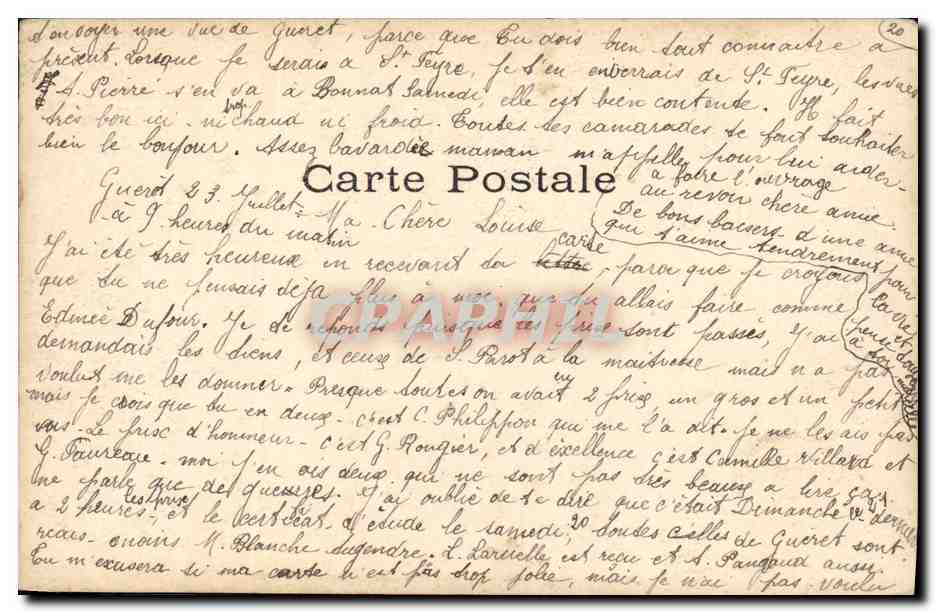 20
t'envoyer une vue de Gueret, parce que tu dois bien tout connaitre à
présent. Lorsque je serais à St Feyre, je t'en enverrais de St Feyre, les vues
A. Pierre s'en va à Bonnat Samedi, elle est bien contente. Il fait
très bon ici ni trop chaud ni froid. Toutes tes camarades te font souhaiter
bien le bonjour. Assez bavardée maman m'appelle pour lui aider
à faire l'ouvrage
au revoir chère amie
De bons baisers d'une amie
qui t'aime tendrement pour
la vie et
Carte Postale
Gueret 23 Juillet
à 9 heures du matin
Ma Chère Louise
J'ai été très heureuse en recevant ta lettre carte, parce que je croyais
que tu ne pensais deja plus à moi, que tu allais faire comme
Edmée Dufour. Je te reponds puisque les prix sont passés, J'ai
demandais les tiens, et ceux de S. Parot à la maitresse mais n'a pas
voulut me les donner. Presque toutes on avait eu 2 prix, un gros et un petit
mais je crois que tu en deux c'est C. Philippon qui me l'a dit. Je ne les ais pas
vus. Le prix d'honneur c'est G. Rougier, et d'éxellence c'est Camille Villard et
G. Taureau. moi j'en ais deux qui ne sont pas très beaux a lire ça
ne parle que des guerres. J'ai oublié de te dire que c'était Dimanche dernier
a 2 heures les prix et le certicat d'étude le samedi 20 toutes celles de Gueret sont
recais moins M. Blanche Jugendre. L. Laruelle est reçu et A. Pangaud aussi
Tu m'exusera si ma carte n'est pas trop jolie, mais je n'ai pas voulu
CPAPHIL